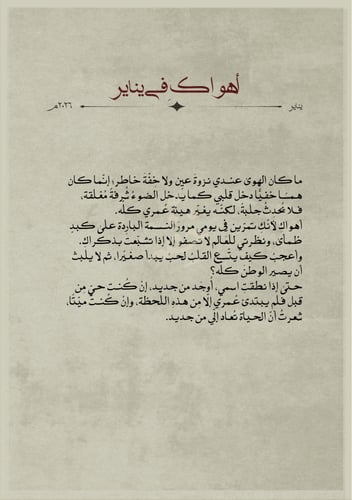 أهواك في يناير
يناير ٢٠٢٦م
ما كان الهوى عندي نزوة عينٍ ولا خفّة خاطر، إنّما كان
همسًا خفيًّا دخل قلبي كما يدخل الضوءُ شرفةً مُغلقة،
فلا يُحدثُ جلبةً، لكنّه يغيّر هيئة عُمري كلّه.
أهواك لأنّك تمرّين في يومي مرورَ النسمة الباردة على كبدٍ
ظمأى، ونظرتي للعالم لا تصفو إلا إذا تشبّعت بذكراكِ.
وأعجبُ كيف يتّسع القلبُ لحبٍ يبدأ صغيرًا، ثم لا يلبث
أن يصير الوطنَ كلّه؟
حتى إذا نطقتِ اسمي، أُوجد من جديد، إنْ كنت حيّ من
قبل فلم يبتدئ عُمري إلّا من هذهِ اللحظة، وإن كُنت ميّتًا،
شعرتُ أنّ الحياة تُعاد إلي من جديد.